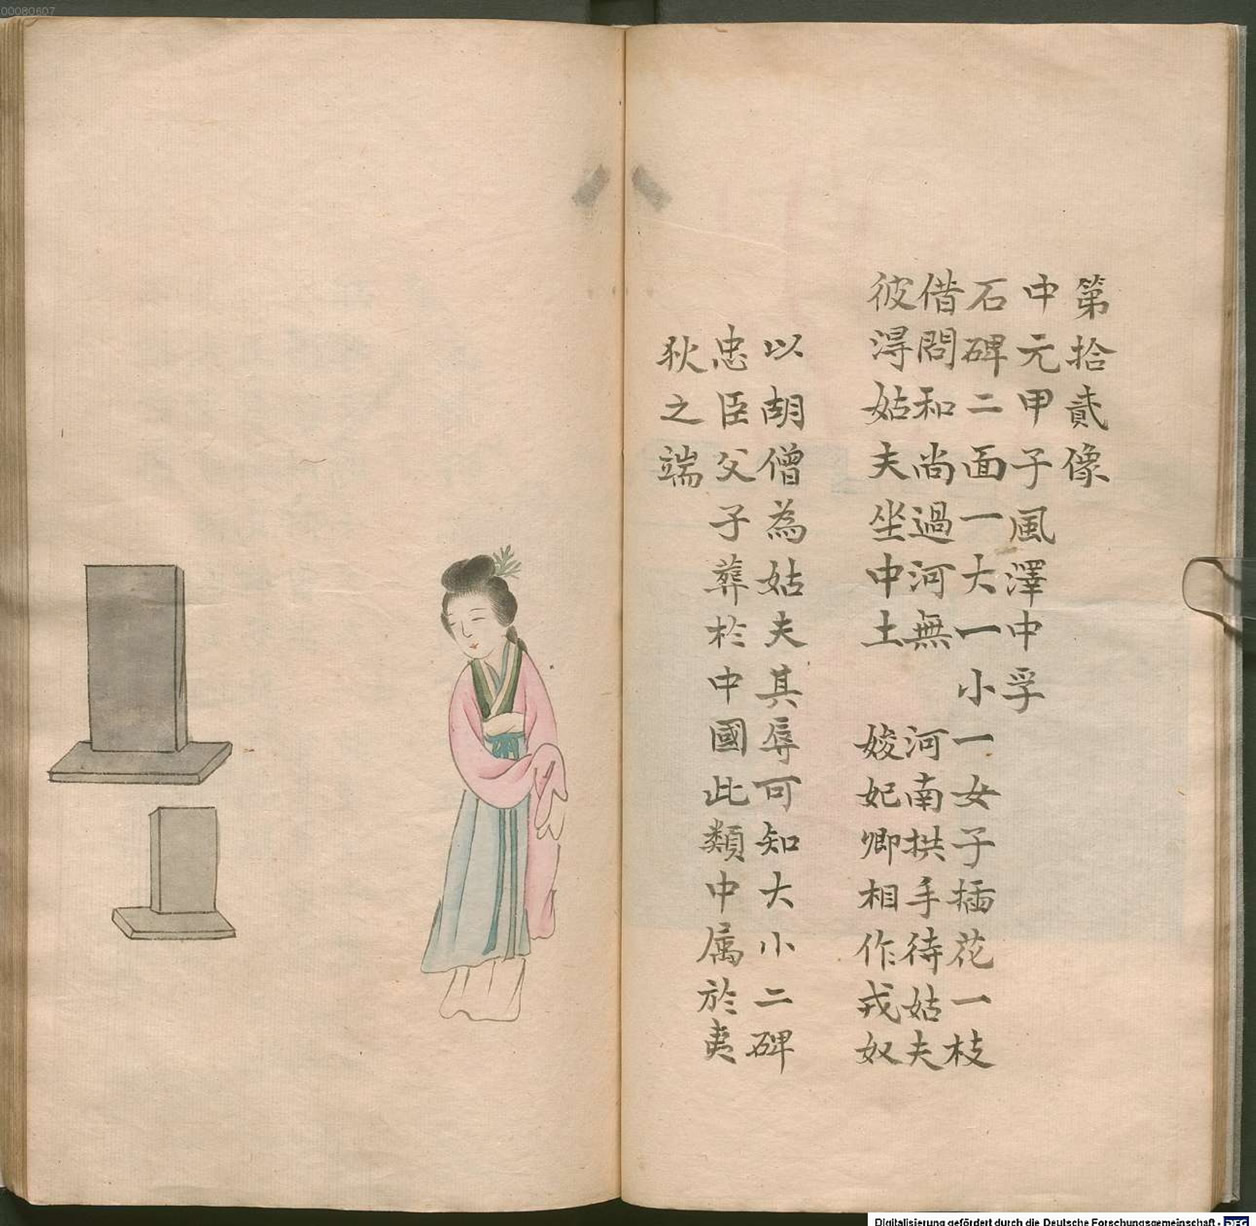 00080607
第拾貳像
中元甲子風澤中孚
石碑二面一大一小 一女子插花一枝
借問和尚過河無 河南拱手待姑夫
彼得姑夫坐中土 嫂妃卿相作戎奴
以胡僧為姑夫其辱可知大小二碑
忠臣父子葬於中國此類中属於夷
狄之端
Digitalisierung gefördert durch die Deutsche Forschungsgemeinschaft - DFG